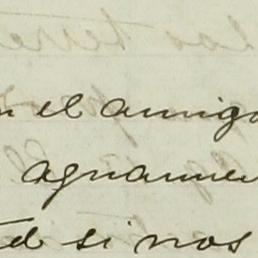 n el amigo
aguamen
ted si nos